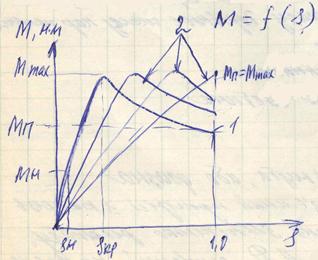 M, нм
2
M = f (s)
Mmax
Mп = Mmax
Mп
1
Mн
sн
sкр
1,0
s